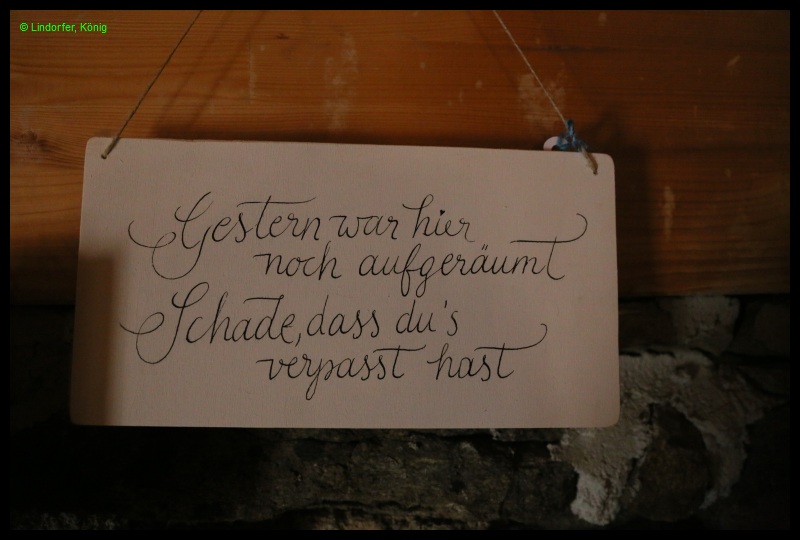 © Lindorfer, König
Gestern war hier
noch aufgeräumt
Schade, dass du's
verpasst hast